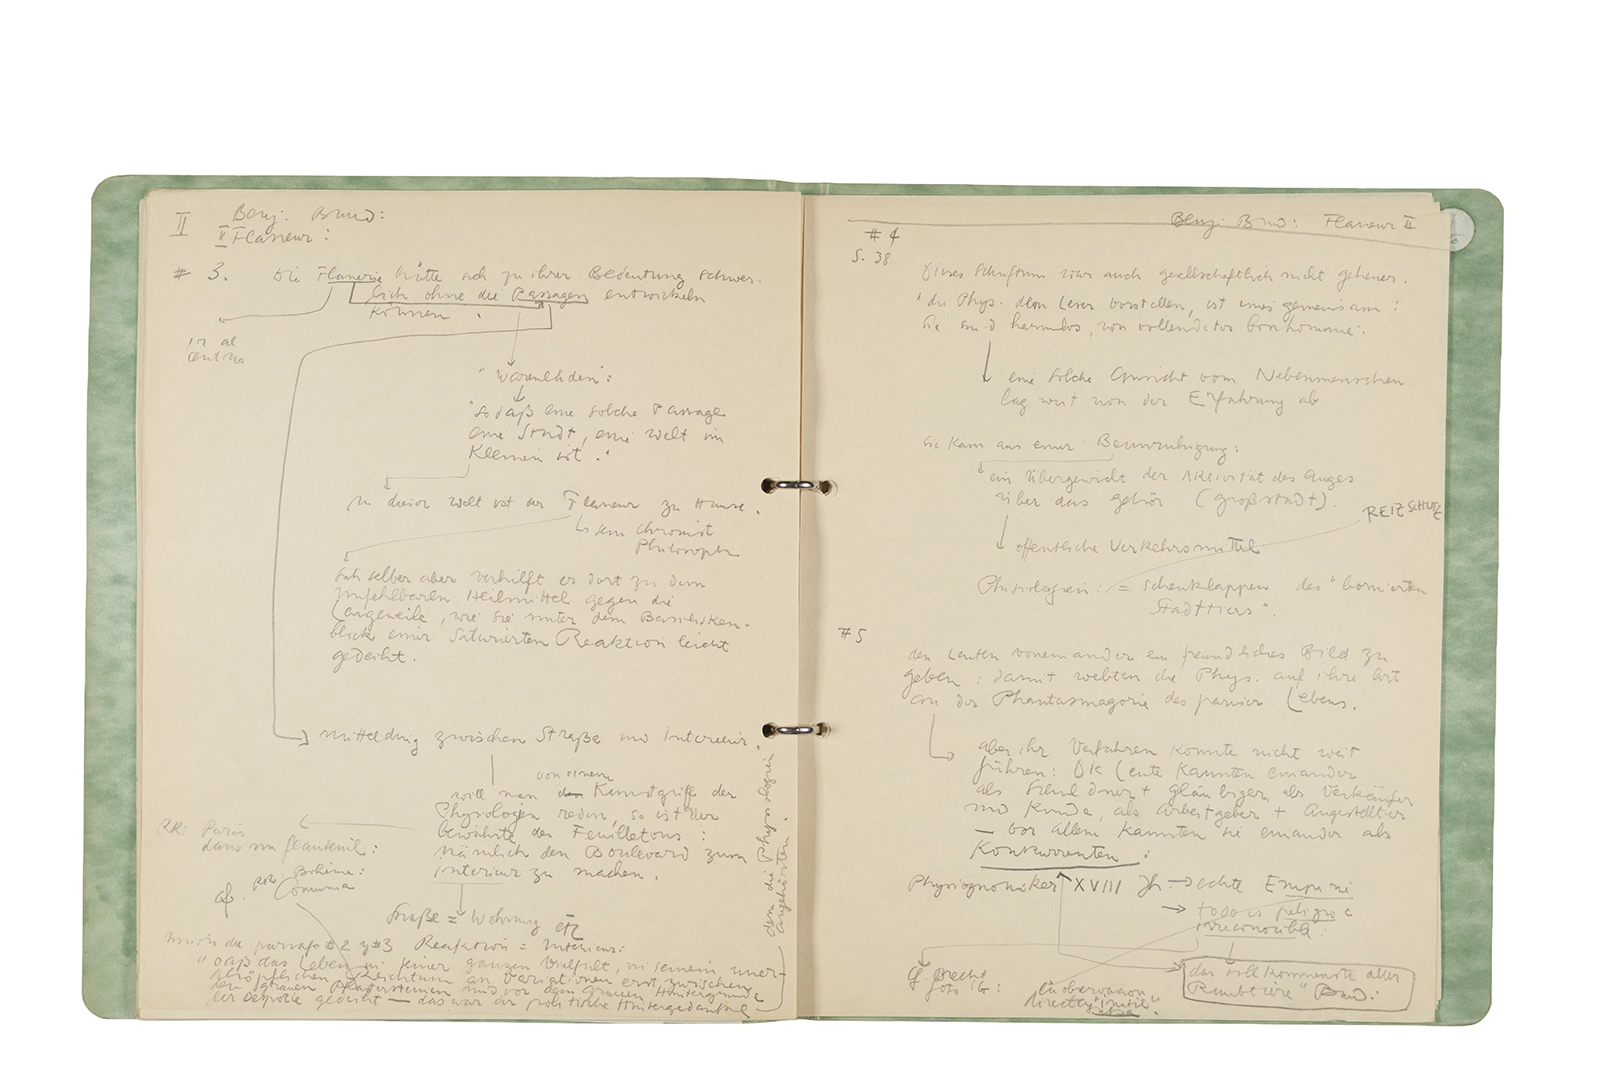 II
Benj. Baud:
II Flaneur:
# 3. Die Flanerie hätte sich zu ihrer Bedeutung schwer-
lich ohne die Passagen entwickeln
können.
"Warenladen":
"so daß eine solche Passage
eine Stadt, eine Welt im
Kleinen ist."
In dieser Welt ist der Flaneur zu Hause.
sein chronist
Philosoph
Sich selber aber verhilft er dort zu dem
unfehlbaren Heilmittel gegen die
Langeweile, wie sie unter dem Basilisken-
blick einer saturierten Reaktion leicht
gedeiht.
Mittelding zwischen Straße und Interieur.
von einem
will man den Kunstgriff der
Physiologien reden, so ist der
bewährte des Feuilletons:
nämlich den Boulevard zum
Interieur zu machen.
RK: Paris
dans un flauteuil:
cf. Bohème:
Comuna
Straße = Wohnung etc
dem die Physiologien
angehörten.
párrafo # 2 y # 3 Reaktion = Interieur:
"Daß das Leben in seiner ganzen Vielfalt, in seinem uner-
schöpflichen Reichtum an Variationen erst zwischen
den grauen Pflastersteinen und vor dem grauen Hintergrunde
der Despotie gedeiht — das war der politische Hintergedanke
Benj. Baud: Flaneur II
# 4
S. 38
Dieses Schrifttum war auch gesellschaftlich nicht geheuer.
die Phys. dem Leser vorstellen, ist eines gemeinsam:
Sie sind harmlos, von vollendeter bonhomie.
eine solche Ansicht vom Nebenmenschen
lag weit von der Erfahrung ab
Sie kam aus einer Beunruhigung:
ein Übergewicht der Aktivität des Auges
über das gehör (Großstadt).
REIZSCHUTZ
öffentliche Verkehrsmittel
Physiologien: = Scheuklappen des "bornierten
Stadttiers".
# 5
den Leuten voneinander ein freundliches Bild zu
geben: damit webten die Phys. auf ihre Art
an der Phantasmagorie des pariser Lebens.
aber ihr Verfahren konnte nicht weit
führen: Die Leute kannten einander
als Schuldner + gläubiger, als Verkäufer
und Kunde, als Arbeitgeber + Angestellter
— vor allem kannten sie einander als
Konkurrenten:
Physiognomiker XVIII Jh. → echte Empirie
→ todo es peligro e
irreconocible:
cf. Brecht
la observacion
directa "inutil"
das vollkommenste aller
Raubtiere" Baud: